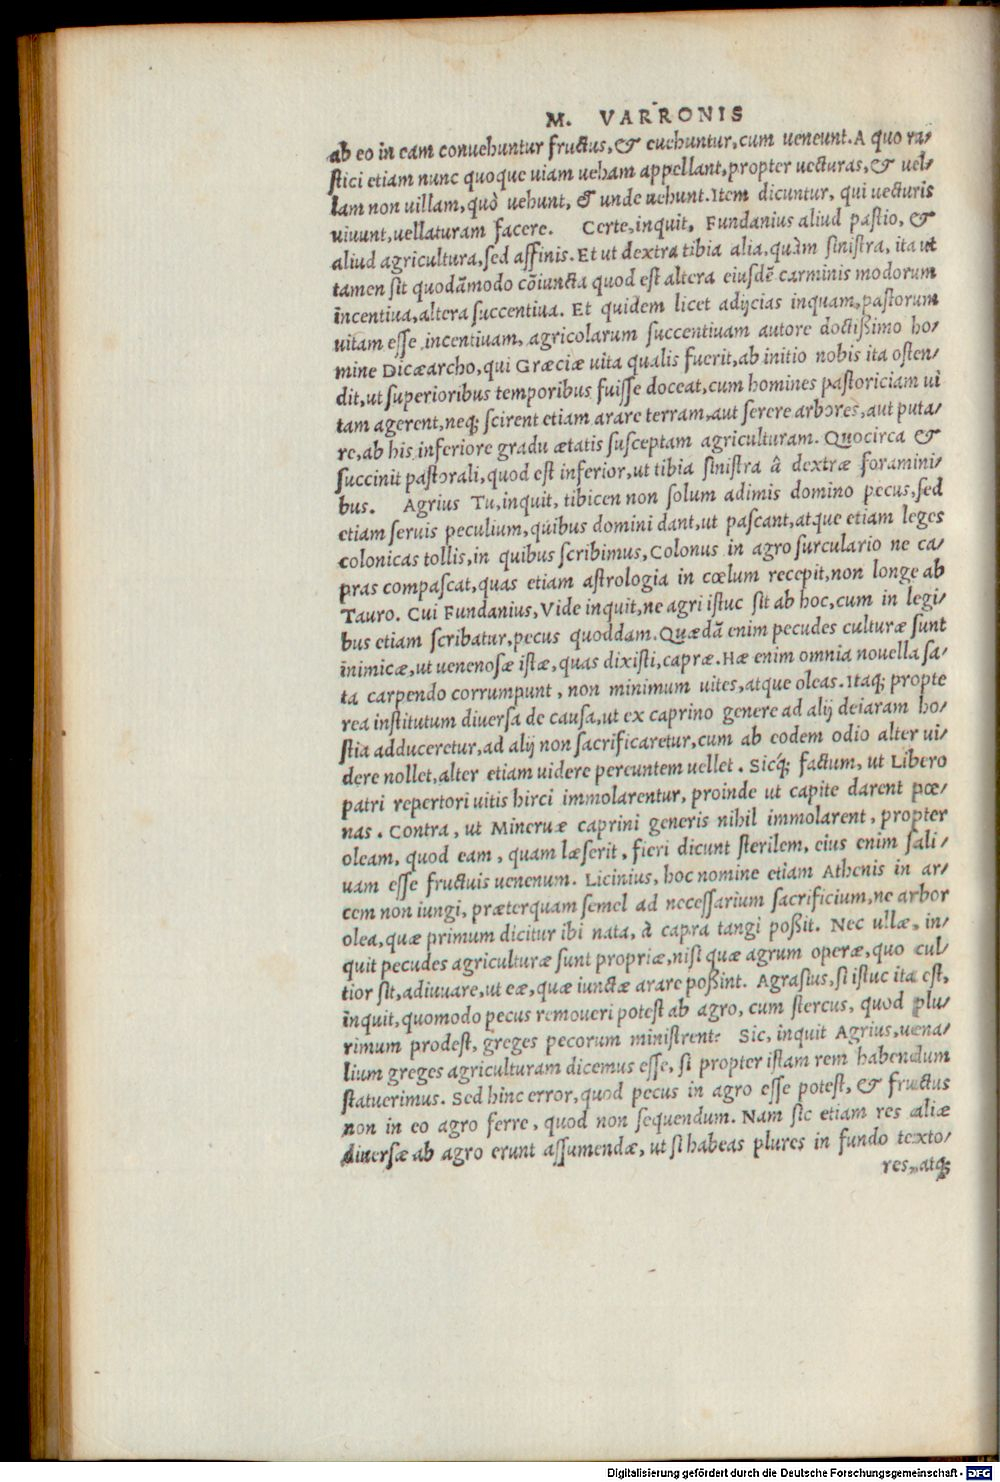 M. VARRONIS
ab eo in eam convehuntur fructus, & euehuntur, cum ueneunt. A quo ru/
stici etiam nunc quoque uiam ueham appellant, propter uecturas, & uel/
lam non uillam, quò uehunt, & unde uehunt. Item dicuntur, qui uecturis
uiuunt, uellaturam facere. Certe, inquit, Fundanius aliud pastio, &
aliud agricultura, sed affinis. Et ut dextra tibia alia, quàm sinistra, ita ut
tamen sit quodāmodo cōiuncta quod est altera eiusdē carminis modorum
incentiua, altera succentiua. Et quidem licet adijcias inquam, pastorum
uitam esse incentiuam, agricolarum succentiuam autore doctißimo ho/
mine Dicæarcho, qui Græciæ uita qualis fuerit, ab initio nobis ita osten/
dit, ut superioribus temporibus fuisse doceat, cum homines pastoriciam ui
tam agerent, neq; scirent etiam arare terram, aut serere arbores, aut puta/
re, ab his inferiore gradu ætatis susceptam agriculturam. Quocirca &
succinit pastorali, quod est inferior, ut tibia sinistra â dextræ foramini/
bus. Agrius Tu, inquit, tibicen non solum adimis domino pecus, sed
etiam seruis peculium, quibus domini dant, ut pascant, atque etiam leges
colonicas tollis, in quibus scribimus, Colonus in agro surculario ne ca/
pras compascat, quas etiam astrologia in cœlum recepit, non longe ab
Tauro. Cui Fundanius, Vide inquit, ne agri istuc sit ab hoc, cum in legi/
bus etiam scribatur, pecus quoddam. Quædā enim pecudes culturæ sunt
inimicæ, ut uenenosæ istæ, quas dixisti, capræ. Hæ enim omnia nouella sa/
ta carpendo corrumpunt, non minimum uites, atque oleas. Itaq; propte
rea institutum diuersa de causa, ut ex caprino genere ad alij deiaram ho/
stia adduceretur, ad alij non sacrificaretur, cum ab eodem odio alter ui/
dere nollet, alter etiam uidere pereuntem uellet. Sicq; factum, ut Libero
patri repertori uitis hirci immolarentur, proinde ut capite darent pœ/
nas. Contra, ut Mineruæ caprini generis nihil immolarent, propter
oleam, quod eam, quam læserit, fieri dicunt sterilem, eius enim sali/
uam esse fructuis uenenum. Licinius, hoc nomine etiam Athenis in ar/
cem non iungi, præterquam semel ad necessarium sacrificium, ne arbor
olea, quæ primum dicitur ibi nata, à capra tangi poßit. Nec ullæ, in/
quit pecudes agriculturæ sunt propriæ, nisi quæ agrum operæ, quo cul/
tior sit, adiuuare, ut eæ, quæ iunctæ arare poßint. Agrasius, si istuc ita est,
inquit, quomodo pecus remoueri potest ab agro, cum stercus, quod plu/
rimum prodest, greges pecorum ministrent? Sic, inquit Agrius, uena/
lium greges agriculturam dicemus esse, si propter istam rem habendum
statuerimus. Sed hinc error, quod pecus in agro esse potest, & fructus
non in eo agro ferre, quod non sequendum. Nam sic etiam res aliæ
diuersæ ab agro erunt assumendæ, ut si habeas plures in fundo texto/
res, atq;
Digitalisierung gefördert durch die Deutsche Forschungsgemeinschaft - DFG